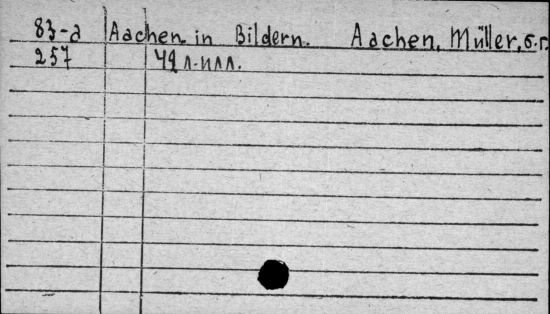 83-2 Aachen in Bildern. Aachen, Müller, б.г.
257 42 л.илл.